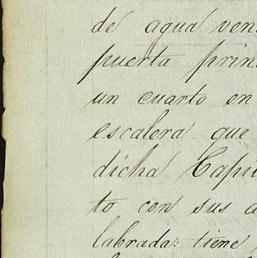 de agua ven
puerta prin
un cuarto en
escalera que
dicha Capi
to con sus a
labrada: tiene